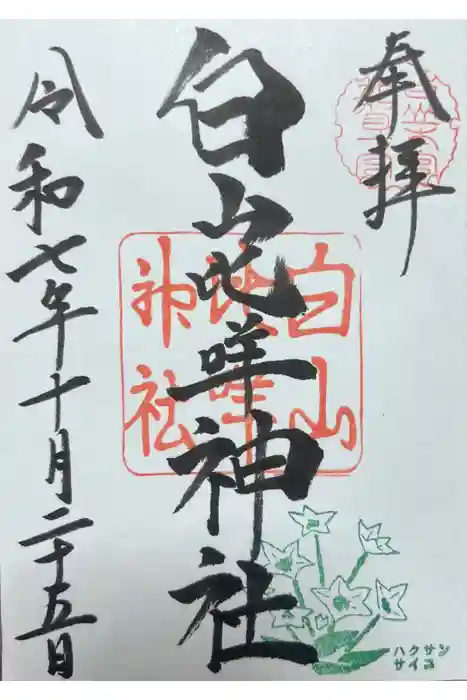 奉拝
白山比咩神社
白山比咩神社
令和七年十月二十五日
ハクサン
サイコ